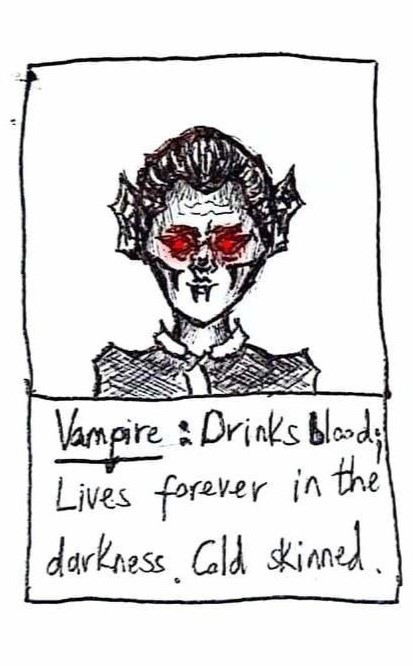 Vampire : Drinks blood;
Lives forever in the
darkness. Cold skinned.